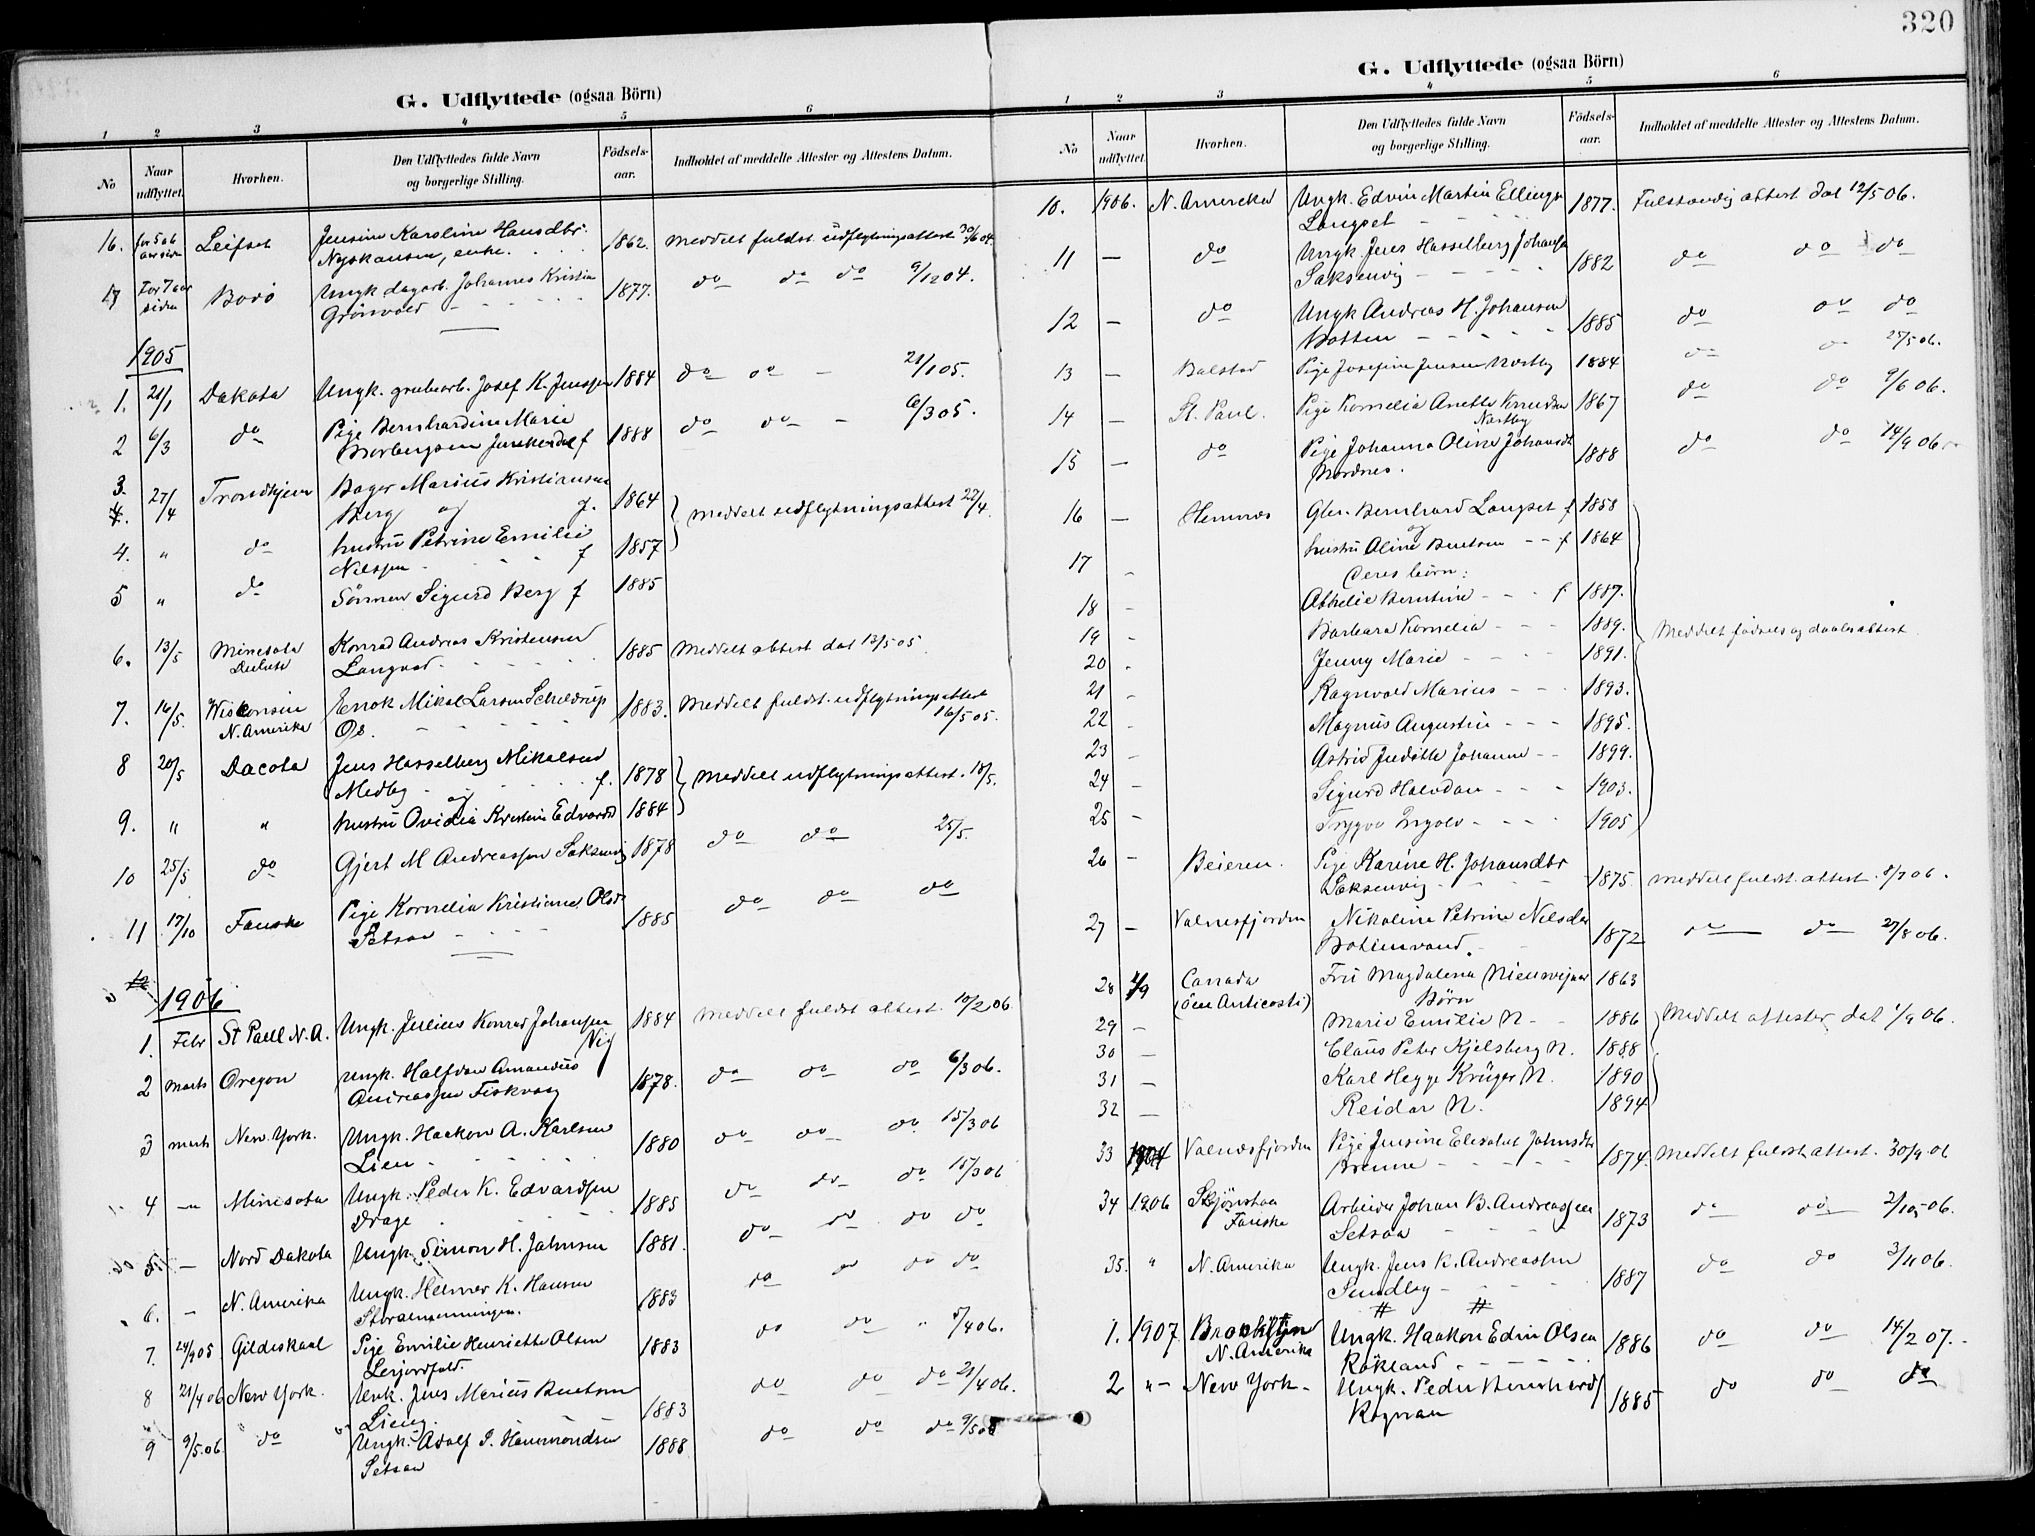 320
G. Udflyttede (ogsaa Börn)
1 2 3 4 5 6
No
Naar udflyttet.
Hvorhen.
Den Udflyttedes fulde Navn og borgerlige Stilling.
Födsels-aar.
Indholdet af meddelte Attester og Attestens Datum.
16. for 5 ob aar siden Leifset Jensine Karoline Hansdtr. 1862. Meddelt fuldst. udflytningsattest 30/6 04.
enke.
17 For 7 aar siden Bodö Ungk. dagarb. Johannes Kristian 1877. do do do 9/12 04.
Grönvold
1905
1. 21/1 Dakota Ungk. grubearb. Josef K. Jenssen 1884 do do - 21/1 05.
2 6/3 do Pige Bernhardine Marie 1888 do do - 6/3 05.
Junkerdal f
3. 27/4 Trondhjem Bager Marius Kristiansen 1864 Meddelt udflytningsattest 27/4.
4. Berg og f.
4. " do hustru Petrine Emilie 1857
Nilssen f
5 " do Sönnen Sigurd Berg f 1885
6. 13/5 Minesota Duluth Konrad Andreas Kristensen 1885 Meddelt attest dat 13/5 05.
Langset
7. 16/5. Wisconsin N. Amerika Enok Mikal Larsen Scheldrup 1883. Meddelt fuldst. udflytningsattest 16/5 05.
Os.
8 20/5 Dacota Jens Hasselberg Mikalsen 1878 Meddelt udflytningsattest. 18/5.
Medby og f.
9. " " hustru Ovidia Kristine Edvardsd 1884
10 25/5 do Gjert M Andreassen Saksenvig 1878 do do 25/5.
11 17/10 Fauske Pige Kornelia Kristiane Olsd. 1885 do do do
Setsaa
1906
1. Febr St Paul N. A. Ungk. Julius Konrad Johansen 1884 Meddelt fuldst attest. 10/2 06.
2 Marts Oregon Ungk. Halfdan Amandus 1878. do do do 6/3 06.
Andreassen Fiskvaag
3 Marts New York. Ungk. Haakon A. Karlsen 1880 do do do 15/3 06
Lien
4 - Minesota Ungk. Peder K. Edvardsen 1885 do do do 15/3 06
Drage
5 - Nord Dakota Ungk. Simon H. Jahnsen 1881. do do do do
6. - N. Amerika Ungk. Helmer K. Hansen 1883 do do do do
7. 24/9 05 Gildeskaal Pige Emilie Henriette Olsen 1883 do do " 5/4 06.
8 21/4 06 New York. Unk. Jens Marius Bentsen 1883 do do do 21/4 06.
9 9/5.06 do Ungk. Adolf J. Hammondsen 1888 do do do 9/5 06
Setsaa
G. Udflyttede (ogsaa Börn)
1 2 3 4 5 6
No
Naar udflyttet.
Hvorhen.
Den Udflyttedes fulde Navn og borgerlige Stilling.
Födsels-aar.
Indholdet af meddelte Attester og Attestens Datum.
10. 1906. N. Amerika Ungk. Edvin Martin Ellingsen 1877. Fulstændig attest dat 12/5 06.
Langset
11 - do Ungk. Jens Hasselberg Johansen 1882 do do do
Saksenvig
12 - do Ungk Andreas H. Johansen 1885 do do do
Botten
13 - Balstad Pige Josefine Jensen 1884 do do 25/5 06.
14 - St. Paul. Pige Kornelia Anette Knudsen 1867 do do 9/6 06.
15 - do Pige Johanna Oline Johansdtr 1888 do do 14/9 06
Nordnes.
16 - Hemnes Gbr. Bernhard Langset f 1858
og
17 - hustru Aline Bentsen f 1864
Deres börn:
18 - Athelie Berntine f 1887.
19 - Barbara Kornelia 1889. Meddelt födsels og daabsattest.
20 - Jenny Marie 1891.
21 - Ragnvald Marius 1893.
22 - Magnus Augustin 1895.
23 - Astrid Judithe Johanne 1899.
24 - Sigurd Halvdan 1903.
25 - Trygve Ingolv 1905
26 - Beieren. Pige Karine H. Johansdtr 1875. Meddelt fuldst. attest. 8/7 06.
Saksenvig
27 - Valnesfjorden Nikoline Petrine Nilsdtr 1872 do do 27/8 06.
Botnvand
28 1/9 Canada (öen Anticosti) Fru Magdalena Nieuwejaar 1863
Börn
29 - Marie Emilie N. 1886 Meddelt attester dat 1/9 06.
30 - Claus Peter Kjelsberg N. 1888
31 - Karl Hegge Krüger N. 1890
32 - Reidar N. 1894
33 1904 Valnesfjorden Pige Jensine Elisabet Johnsdtr 1874. Meddelt fuldst attest. 30/9 06
Brenne
34 1906 Skjönstaa Fauske Arbeider Johan B. Andreassen 1873 do do 2/10 06.
Setsaa
35. " N. Amerika Ungk. Jens K. Andreassen 1887 do do 3/11 06.
Sundby
1. 1907. Brooklyn N. Amerika Ungk. Haakon Edin Olsen 1886 do do 14/2 07.
Rökland
2 " - New York - Ungk. Peder Bernhard 1885 do do do
Rognan